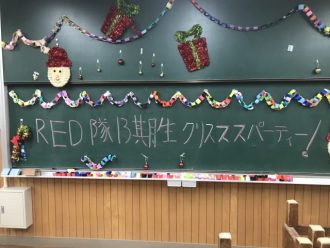 RED隊13期生 クリスススパーティー!